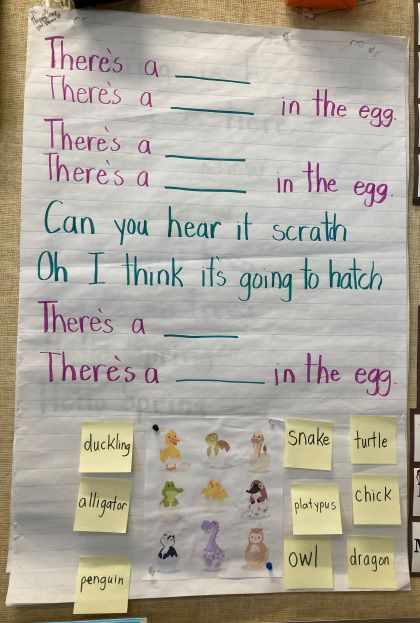 There's a ____
There's a ____ in the egg.
There's a ____
There's a ____ in the egg.
Can you hear it scratch
Oh I think it's going to hatch
There's a ____
There's a ____ in the egg.
duckling
snake
turtle
alligator
platypus
chick
penguin
owl
dragon